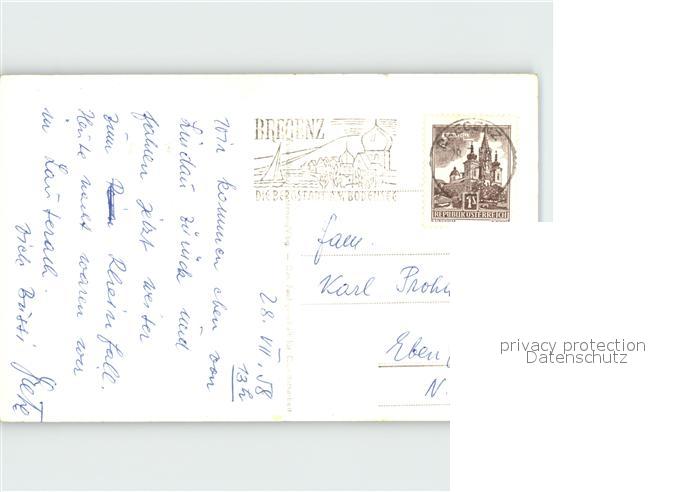 Wir kommen eben von
Lindau zurück und
fahren jetzt weiter
zum Rheinfall.
Heute nacht waren wir
in Lauterach.
Viele Bussi
28. VII. 58
13h
BREGENZ
DIE BERGSTADT AM BODENSEE
BREGENZ
REPUBLIK ÖSTERREICH
Fam.
Karl
Eben
N.
privacy protection
Datenschutz